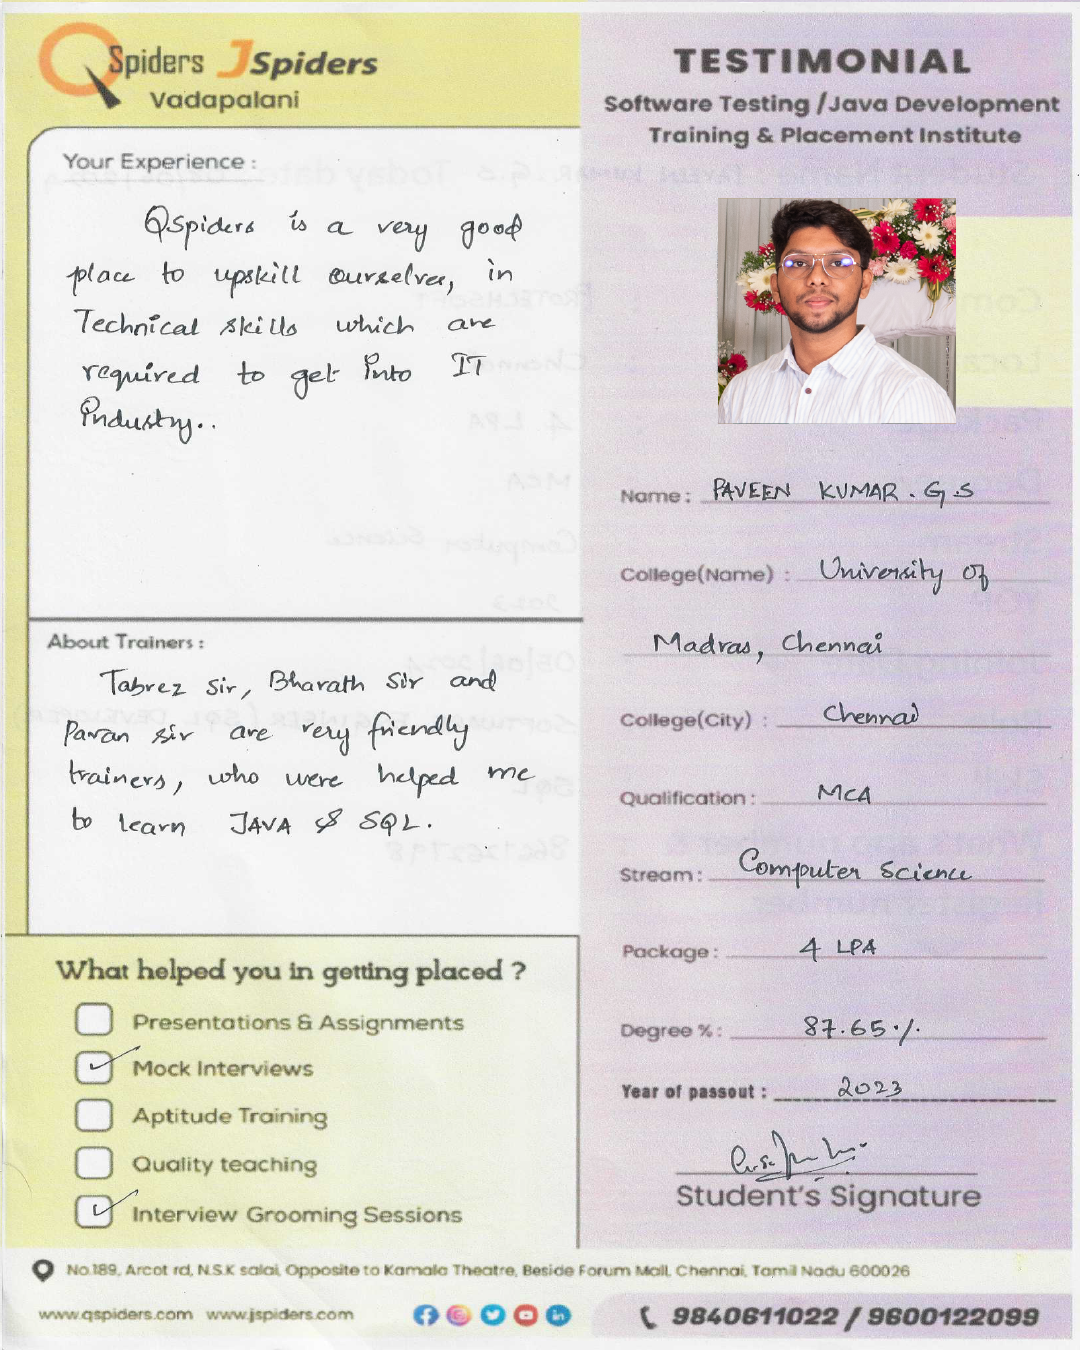 QSpiders JSpiders
Vadapalani
TESTIMONIAL
Software Testing /Java Development
Training & Placement Institute
Your Experience :
QSpiders is a very good
place to upskill ourselves, in
Technical skills which are
required to get into IT
industry..
About Trainers :
Tabrez Sir, Bharath Sir and
Pavan sir are very friendly
trainers, who were helped me
to learn JAVA & SQL.
What helped you in getting placed ?
Presentations & Assignments
Mock Interviews
Aptitude Training
Quality teaching
Interview Grooming Sessions
Name : PAVEEN KUMAR . G.S
College(Name) : University of
Madras, Chennai
College(City) : Chennai
Qualification : MCA
Stream : Computer Science
Package : 4 LPA
Degree % : 87.65%.
Year of passout : 2023
Student's Signature
No.189, Arcot rd, N.S.K salai, Opposite to Kamala Theatre, Beside Forum Mall, Chennai, Tamil Nadu 600026
www.qspiders.com www.jspiders.com
9840611022 / 9600122099